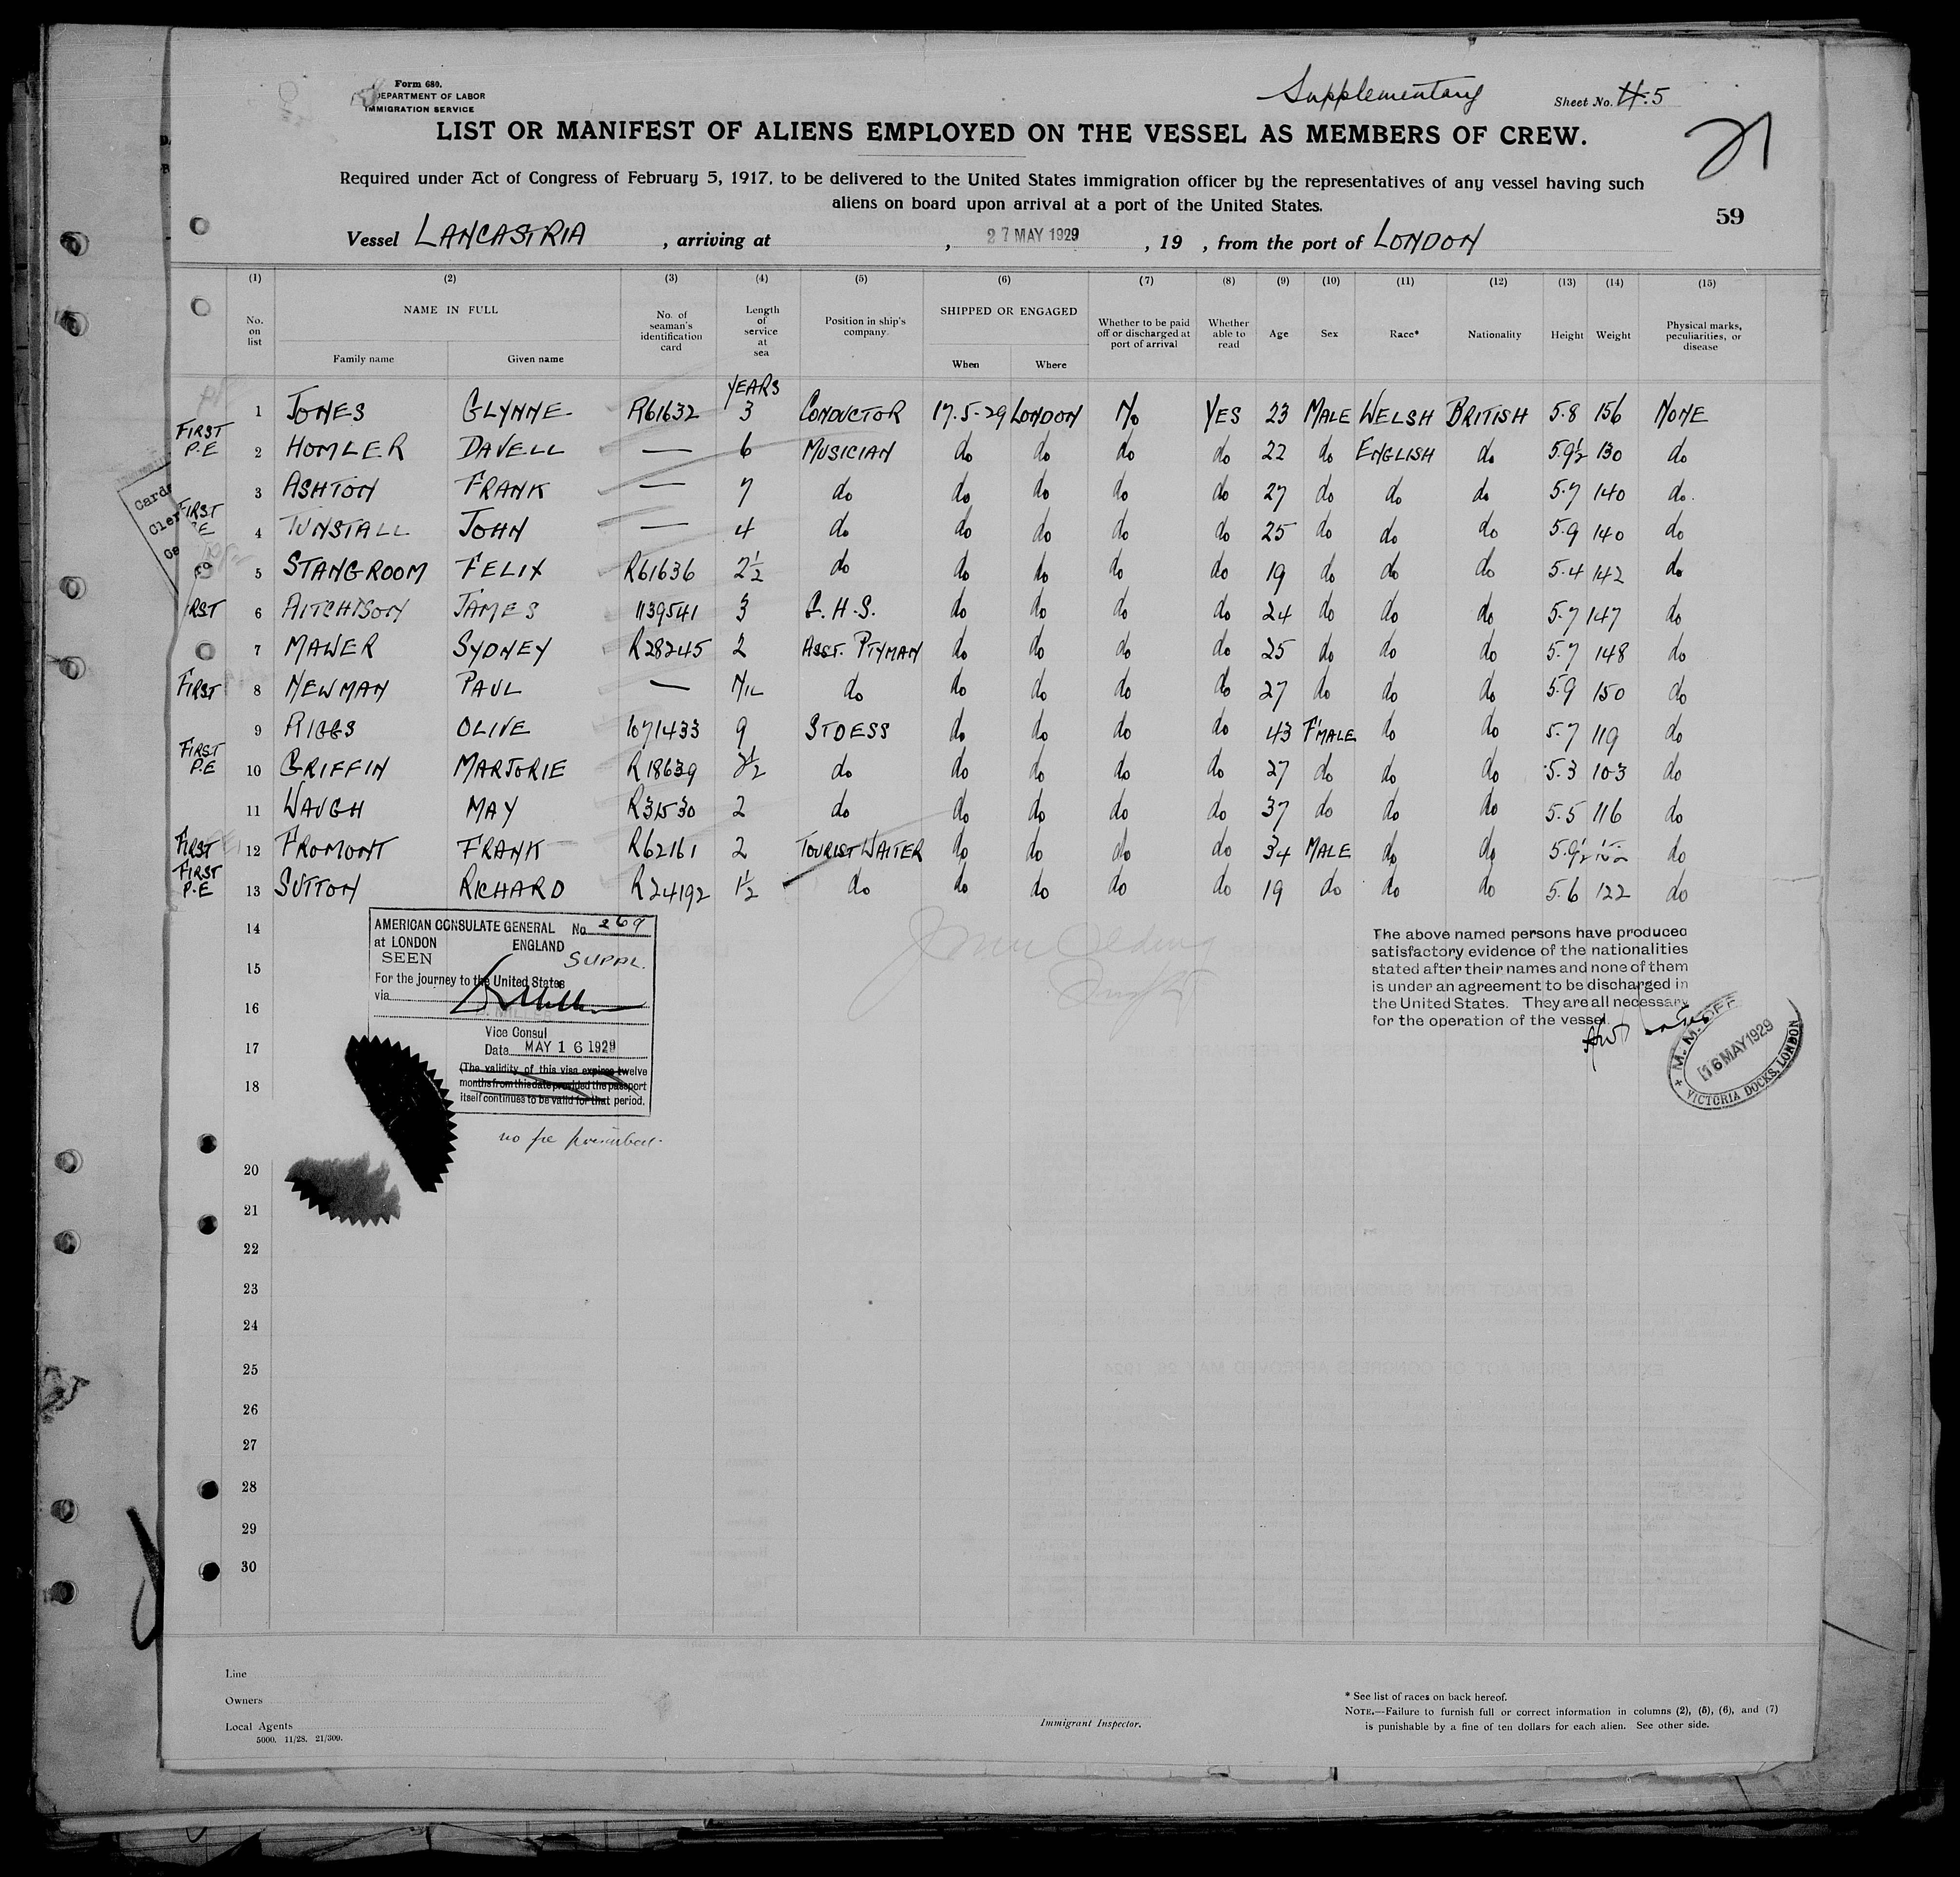 Form 680.
DEPARTMENT OF LABOR
IMMIGRATION SERVICE
Supplementary
Sheet No. 5
LIST OR MANIFEST OF ALIENS EMPLOYED ON THE VESSEL AS MEMBERS OF CREW.
21
Required under Act of Congress of February 5, 1917, to be delivered to the United States immigration officer by the representatives of any vessel having such
aliens on board upon arrival at a port of the United States.
59
Vessel LANCASTRIA , arriving at , 27 MAY 1929 , 19 , from the port of LONDON
(1) (2) (3) (4) (5) (6) (7) (8) (9) (10) (11) (12) (13) (14) (15)
No. on list
NAME IN FULL
Family name Given name
No. of seaman's identification card
Length of service at sea
Position in ship's company.
SHIPPED OR ENGAGED
When Where
Whether to be paid off or discharged at port of arrival
Whether able to read
Age Sex Race* Nationality Height Weight
Physical marks, peculiarities, or disease
YEARS
1 JONES GLYNNE R61632 3 CONDUCTOR 17.5-29 LONDON No YES 23 MALE WELSH BRITISH 5.8 156 NONE
FIRST P.E 2 HOMLER DAVELL — 6 MUSICIAN do do do do 22 do ENGLISH do 5.9½ 130 do
3 ASHTON FRANK — 7 do do do do do 27 do do do 5.7 140 do.
FIRST 4 TUNSTALL JOHN — 4 do do do do do 25 do do do 5.9 140 do
5 STANGROOM FELIX R61636 2½ do do do do do 19 do do do 5.4 142 do
RST 6 AITCHISON JAMES 1139541 3 G.H.S. do do do do 24 do do do 5.7 147 do
7 MAWER SYDNEY R28245 2 ASST. PTYMAN do do do do 25 do do do 5.7 148 do
FIRST 8 NEWMAN PAUL — NIL do do do do do 27 do do do 5.9 150 do
9 RIGGS OLIVE 1071433 9 STDESS do do do do 43 F'MALE do do 5.7 119 do
FIRST P.E 10 GRIFFIN MARJORIE R18639 2½ do do do do do 27 do do do 5.3 103 do
11 WAUGH MAY R31530 2 do do do do do 37 do do do 5.5 116 do
FIRST 12 FROMONT FRANK R62161 2 TOURIST WAITER do do do do 34 MALE do do 5.9½ do
FIRST P.E 13 SUTTON RICHARD R24192 1½ do do do do do 19 do do do 5.6 122 do
14
15
16
17
18
20
21
22
23
24
25
26
27
28
29
30
AMERICAN CONSULATE GENERAL No. 269
at LONDON ENGLAND
SEEN SUPPL.
For the journey to the United States
via
Vice Consul
Date MAY 16 1929
(The validity of this visa expires twelve
months from this date provided the passport
itself continues to be valid for that period.
no fee prescribed.
The above named persons have produced
satisfactory evidence of the nationalities
stated after their names and none of them
is under an agreement to be discharged in
the United States. They are all necessary
for the operation of the vessel.
M. M. OFF
16 MAY 1929
VICTORIA DOCKS, LONDON
Line
Owners
Local Agents
5000. 11/28. 21/309.
Immigrant Inspector.
* See list of races on back hereof.
NOTE.—Failure to furnish full or correct information in columns (2), (5), (6), and (7)
is punishable by a fine of ten dollars for each alien. See other side.